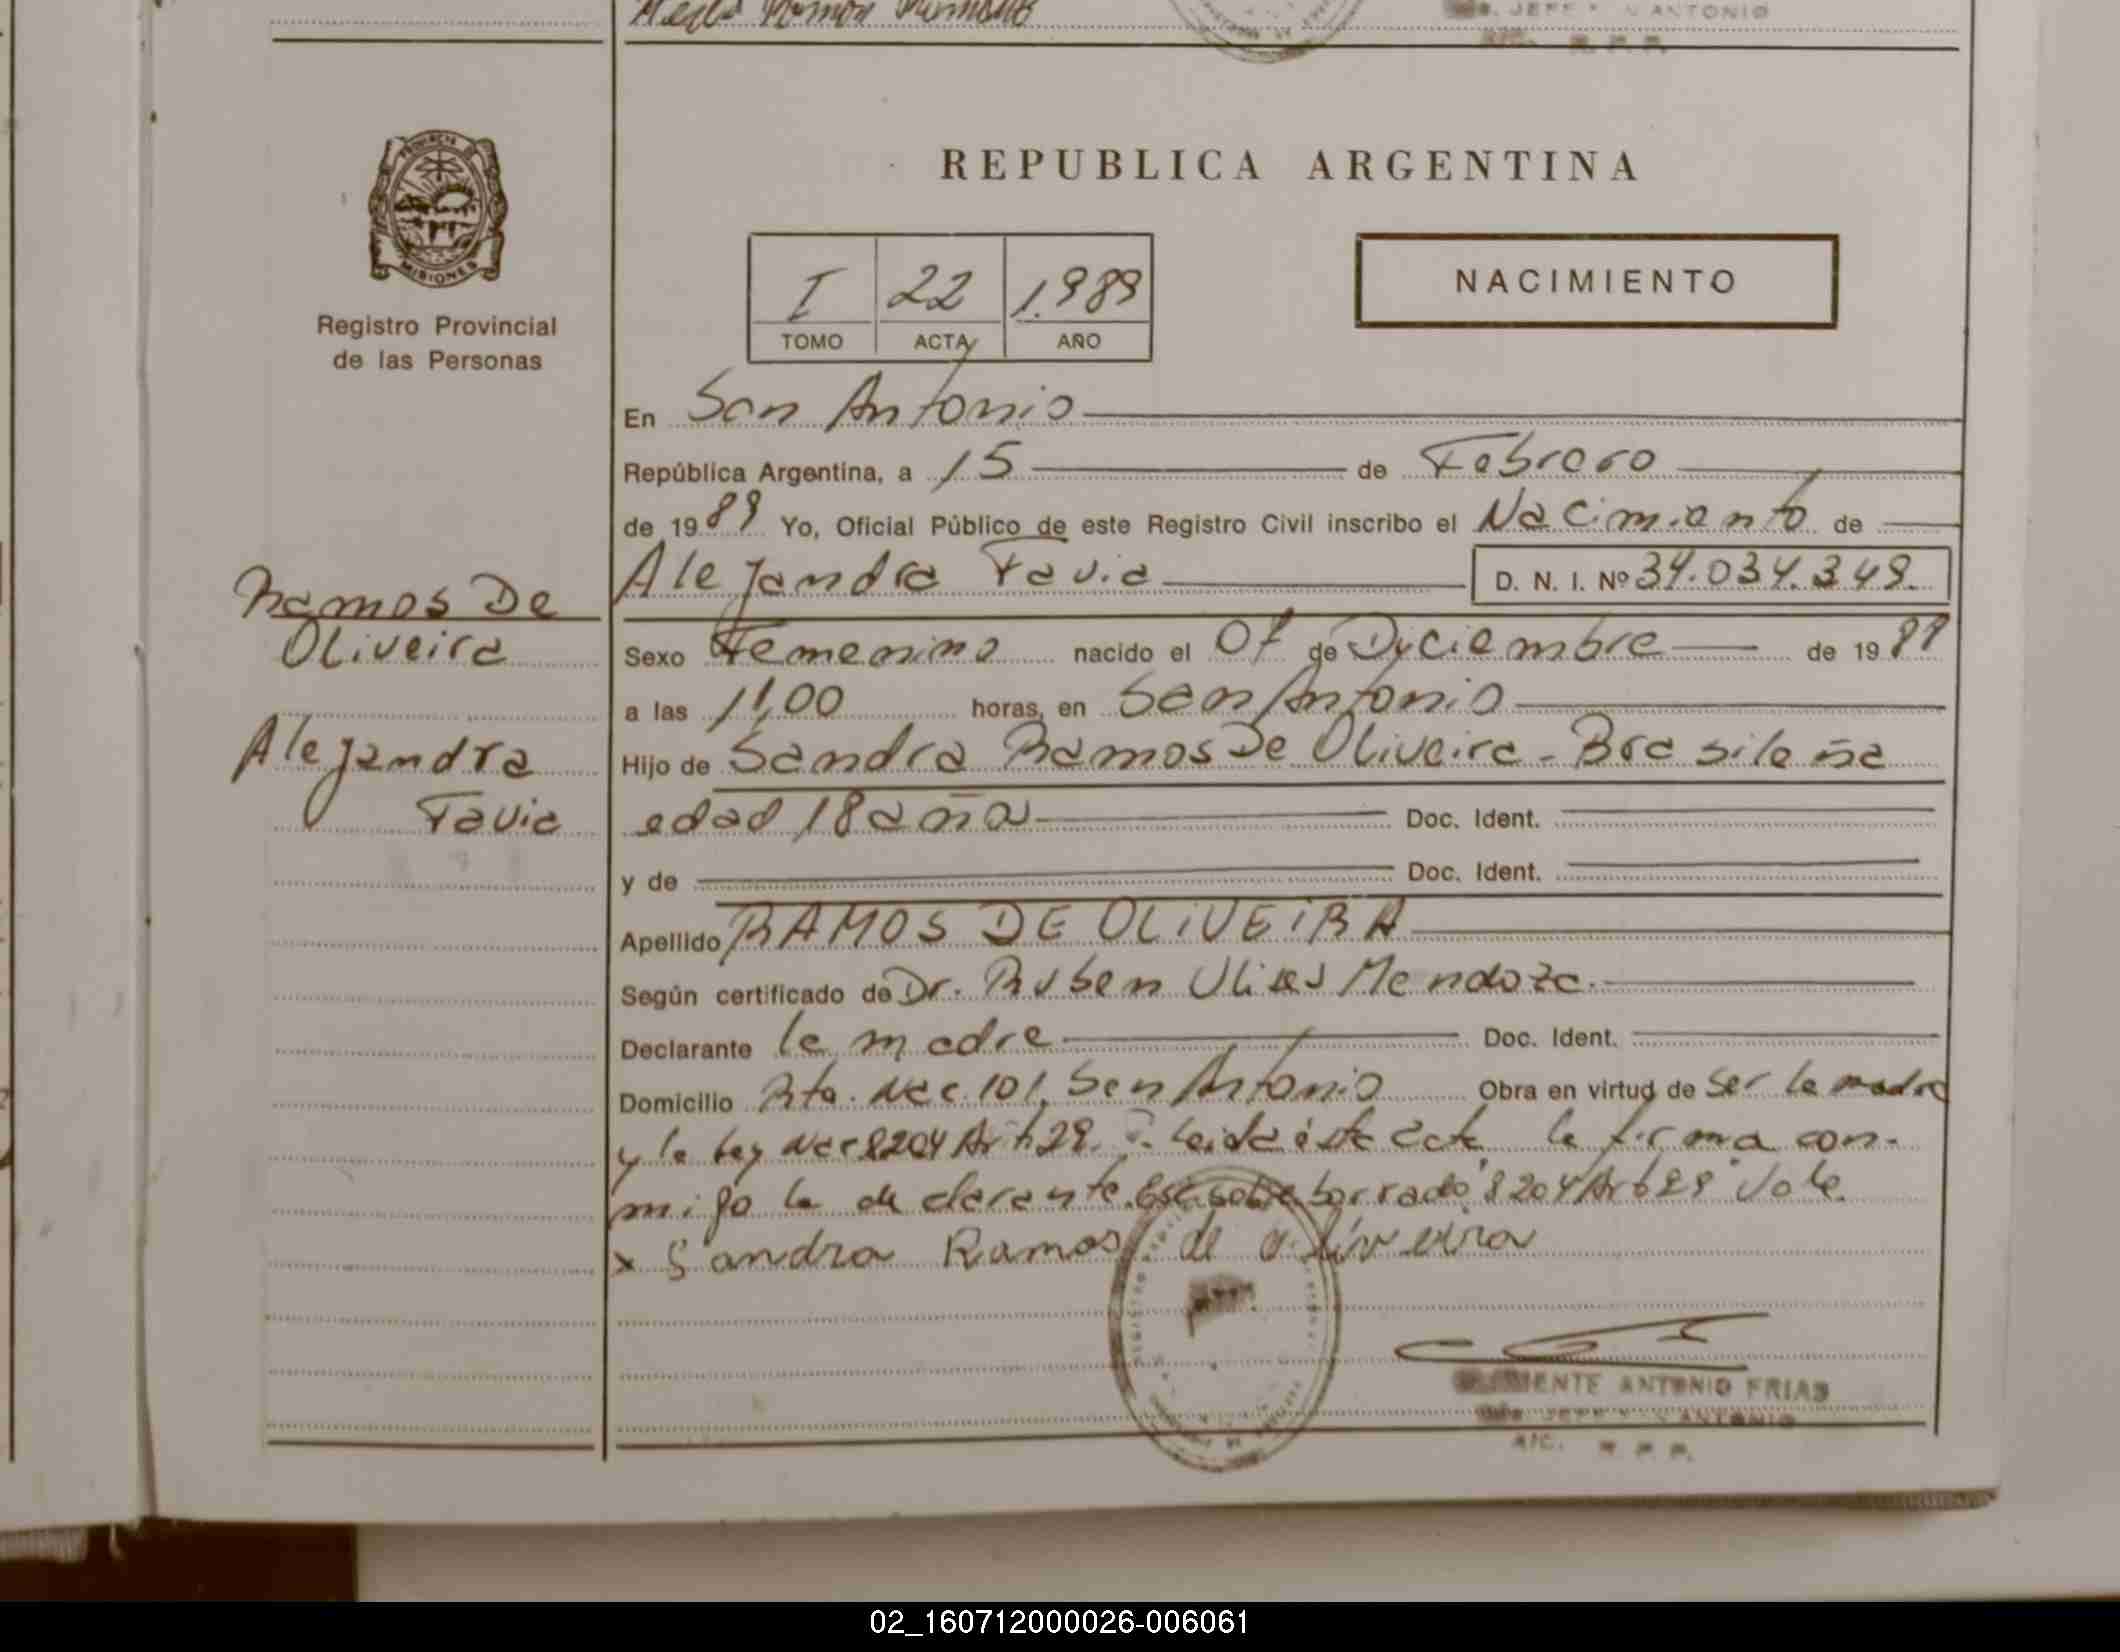 PROVINCIA
MISIONES
Registro Provincial
de las Personas
REPUBLICA ARGENTINA
I 22 1.989
TOMO ACTA AÑO
NACIMIENTO
En San Antonio
República Argentina, a 15 de Febrero
de 1989 Yo, Oficial Público de este Registro Civil inscribo el Nacimiento de
Alejandra Favia D. N. I. Nº 34.034.349.
Ramos De
Oliveira
Alejandra
Favia
Sexo Femenino nacido el 07 de Dyciembre de 19
a las 11,00 horas, en San Antonio
Hijo de Sandra Ramos De Oliveira - Brasileña
edad 18 años Doc. Ident.
y de Doc. Ident.
Apellido RAMOS DE OLIVEIRA
Según certificado de Dr. Ruben Ulises Mendoza.
Declarante la madre Doc. Ident.
Domicilio Rta. Nac. 101. San Antonio Obra en virtud de ser la madre
y la Ley Nac 8204 Art 29. Leida ésta acta la firma con-
migo la declarante. sobre borrado "8204 Art 29" Vale.
x Sandra Ramos de oliveira
ANTONIO FRIAS
JEFE ANTONIO
A/C. R. P. P.
02_160712000026-006061